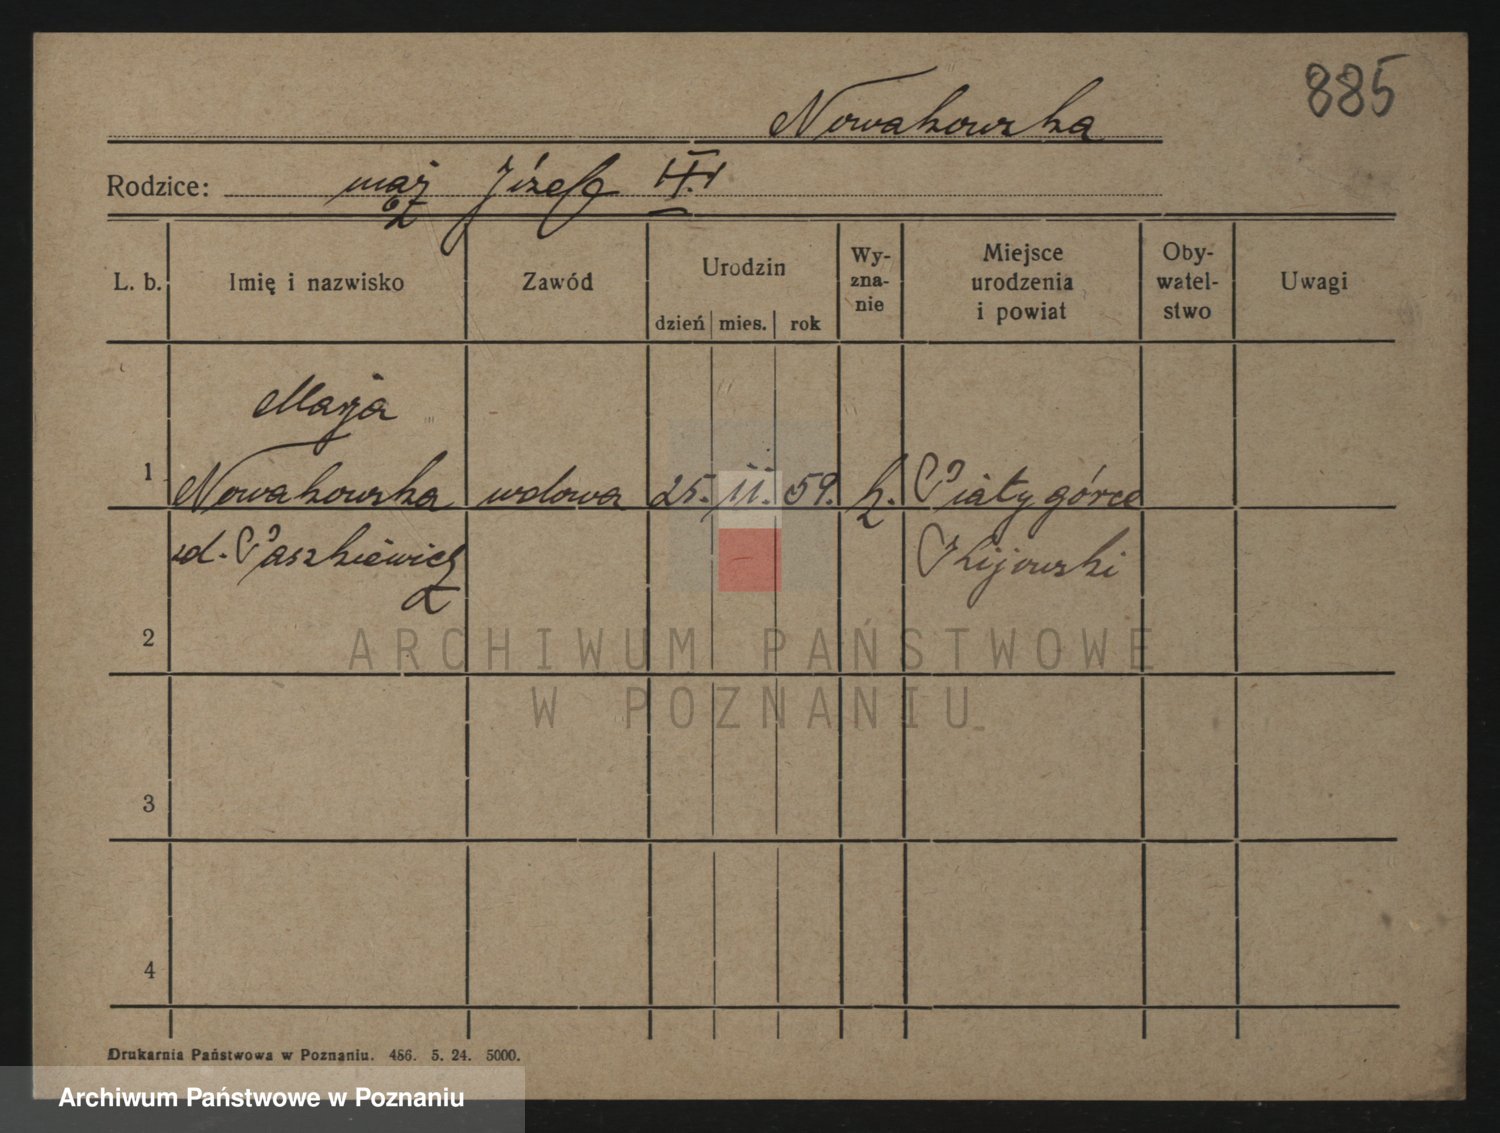 885
Nowakowska
Rodzice: mąż Józef
L. b. Imię i nazwisko Zawód Urodzin dzień mies. rok Wy-zna-nie Miejsce urodzenia i powiat Oby-watel-stwo Uwagi
Marja
1 Nowakowska wdowa 25. 11. 59. k. Piatygórce
zd. Paszkiewicz Kijowski
2
ARCHIWUM PAŃSTWOWE
W POZNANIU
3
4
Drukarnia Państwowa w Poznaniu. 486. 5. 24. 5000.
Archiwum Państwowe w Poznaniu